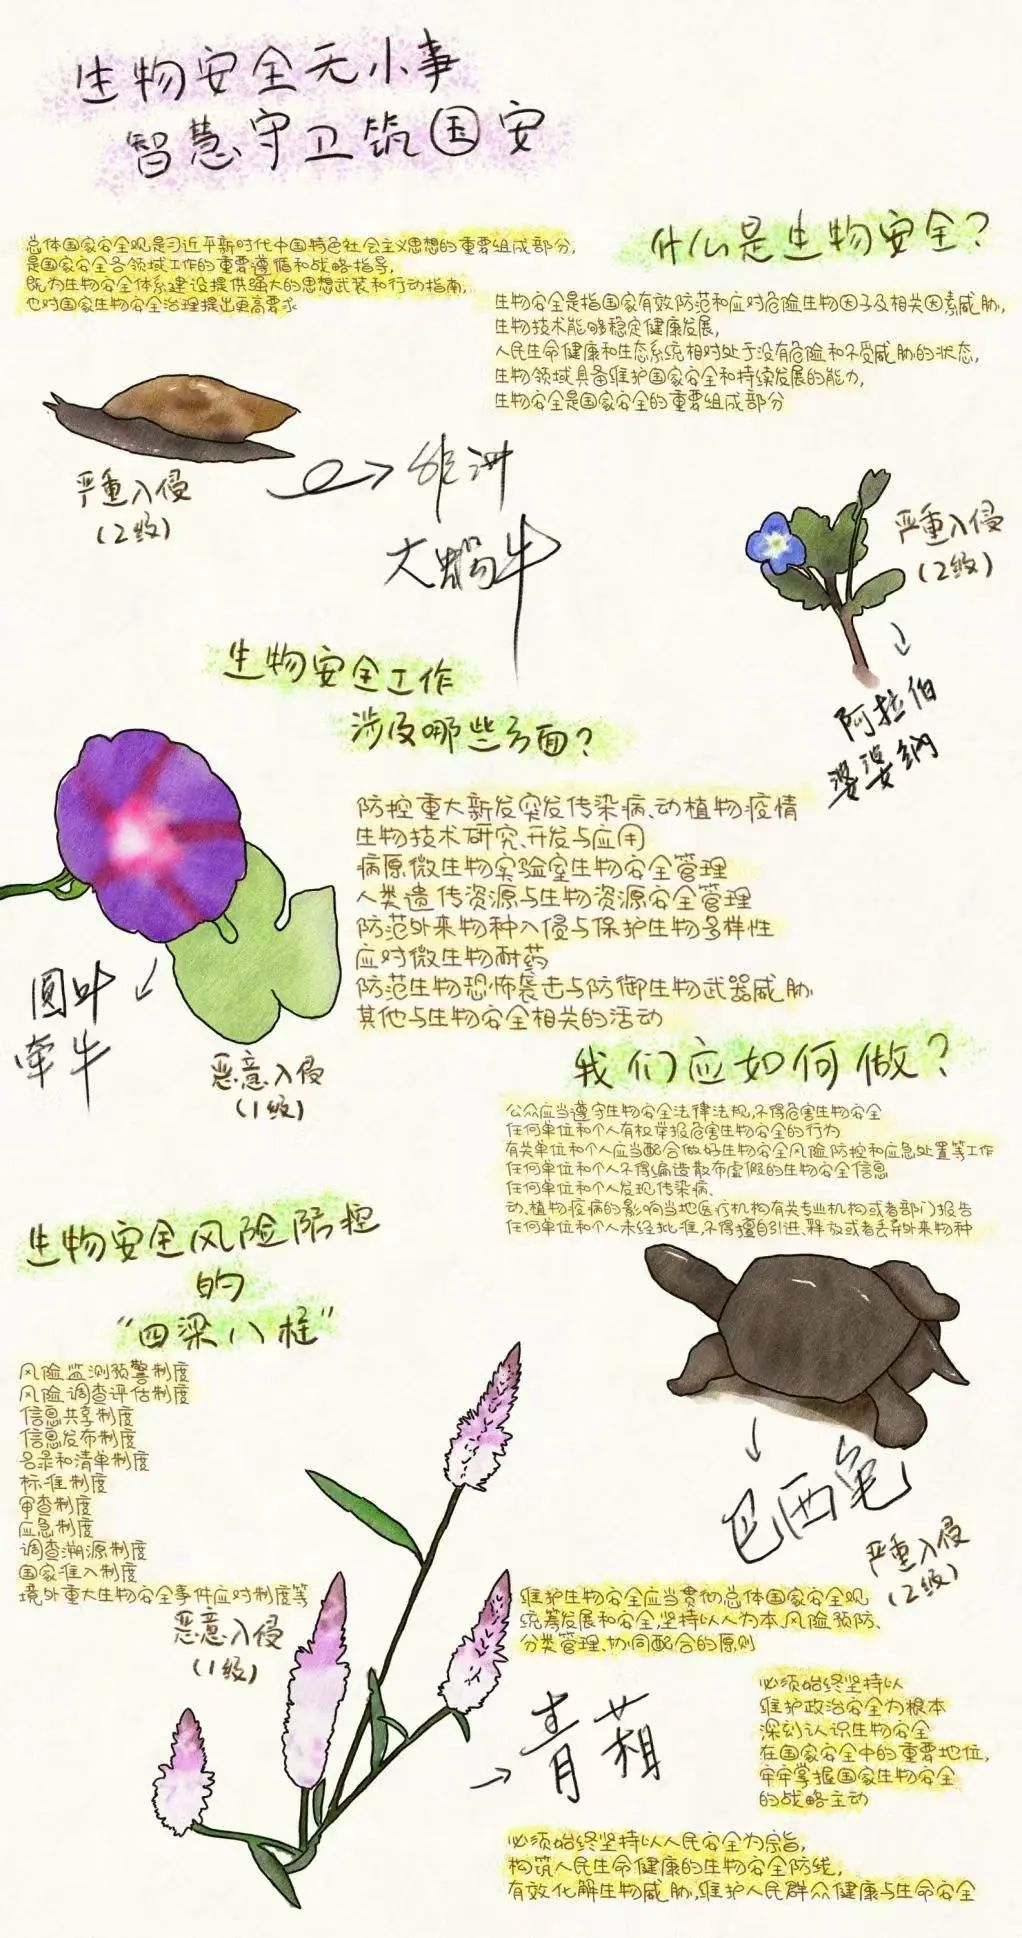 生物安全无小事
智慧守卫筑国安
总体国家安全观是习近平新时代中国特色社会主义思想的重要组成部分,
是国家安全各领域工作的重要遵循和战略指导,
既为生物安全体系建设提供强大的思想武装和行动指南,
也对国家生物安全治理提出更高要求
什么是生物安全?
生物安全是指国家有效防范和应对危险生物因子及相关因素威胁,
生物技术能够稳定健康发展,
人民生命健康和生态系统相对处于没有危险和不受威胁的状态,
生物领域具备维护国家安全和持续发展的能力,
生物安全是国家安全的重要组成部分
严重入侵
(2级)
非洲
大蜗牛
严重入侵
(2级)
阿拉伯
婆婆纳
生物安全工作
涉及哪些方面?
防控重大新发突发传染病、动植物疫情
生物技术研究、开发与应用
病原微生物实验室生物安全管理
人类遗传资源与生物资源安全管理
防范外来物种入侵与保护生物多样性
应对微生物耐药
防范生物恐怖袭击与防御生物武器威胁
其他与生物安全相关的活动
圆叶
牵牛
恶意入侵
(1级)
我们应如何做?
公众应当遵守生物安全法律法规,不得危害生物安全
任何单位和个人有权举报危害生物安全的行为
有关单位和个人应当配合做好生物安全风险防控和应急处置等工作
任何单位和个人不得编造散布虚假的生物安全信息
任何单位和个人发现传染病、
动、植物疫病的影响当地医疗机构有关专业机构或者部门报告
任何单位和个人未经批准,不得擅自引进、释放或者丢弃外来物种
生物安全风险防控
的
“四梁八柱”
风险监测预警制度
风险调查评估制度
信息共享制度
信息发布制度
名录和清单制度
标准制度
审查制度
应急制度
调查溯源制度
国家准入制度
境外重大生物安全事件应对制度等
恶意入侵
(1级)
巴西龟
严重入侵
(2级)
维护生物安全应当贯彻总体国家安全观
统筹发展和安全,坚持以人为本、风险预防、
分类管理、协同配合的原则
青葙
必须始终坚持以
维护政治安全为根本
深刻认识生物安全
在国家安全中的重要地位,
牢牢掌握国家生物安全
的战略主动
必须始终坚持以人民安全为宗旨,
构筑人民生命健康的生物安全防线,
有效化解生物威胁,维护人民群众健康与生命安全